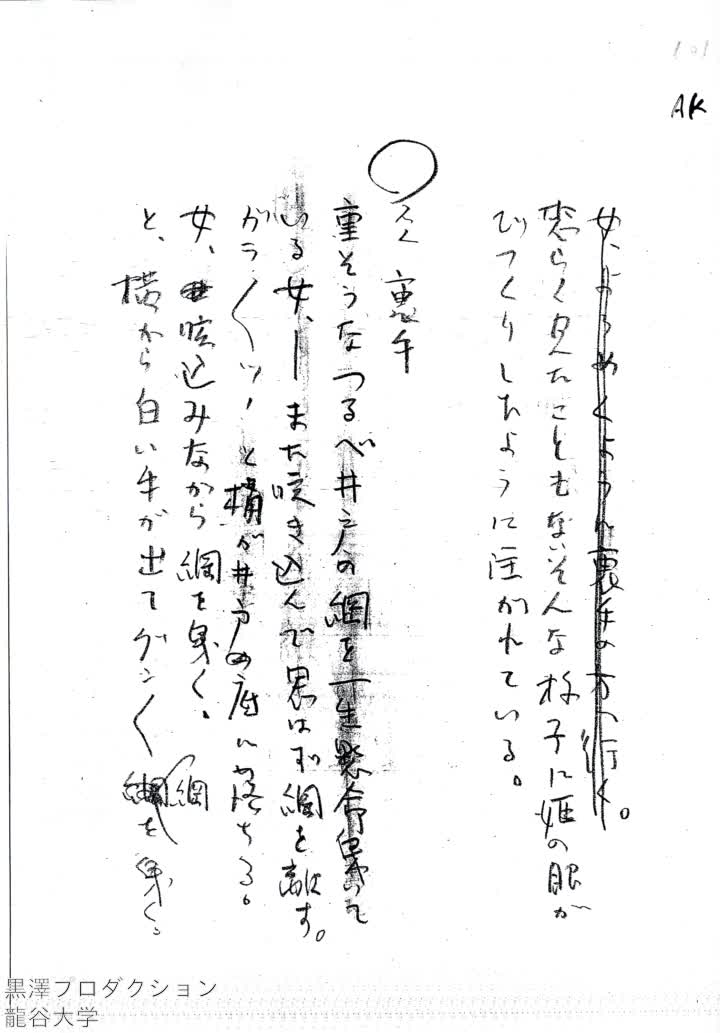 101
AK
女、よろめくように裏手の方へ行く。
恐らく見たこともないそんな様子に姫の眼が
びっくりしたように注がれている。
○
裏手
重そうなつるべ井戸の綱を一生懸命曳いて
いる女、―また咳き込んで思はず綱を離す。
ガラ〱ッ！と桶が井戸の底に落ちる。
女、咳込みながら綱を曳く。
と、横から白い手が出てグン〱綱を曳く。
綱
黒澤プロダクション
龍谷大学